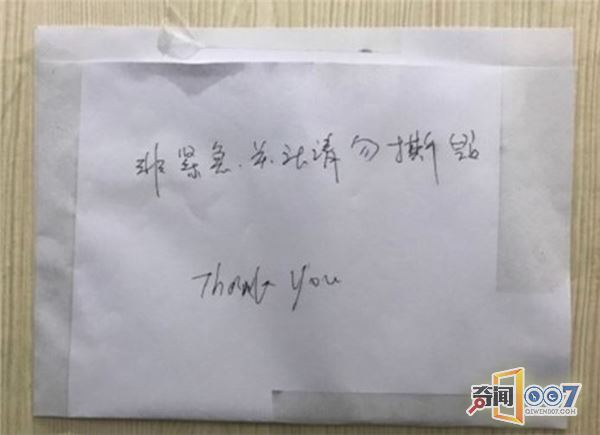 非紧急.请勿撕毁
Thank you
奇闻007
QIWEN007.COM